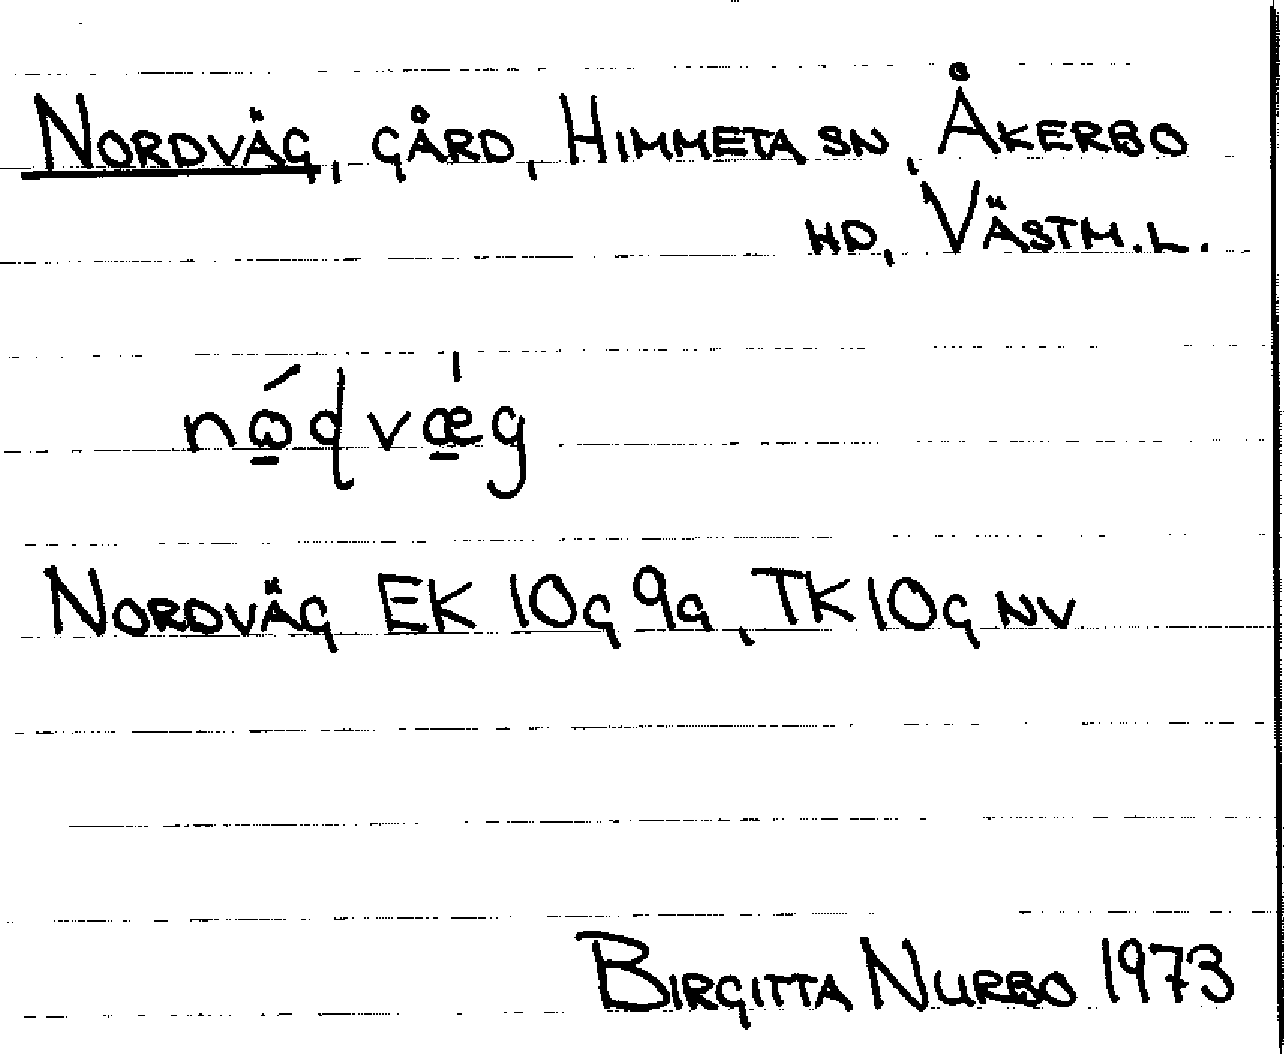 Nordväg, gård, Himmeta sn, Åkerbo
hd, Västm.l.
nώ̲ɖvæ̲̍g
Nordväg EK 10g 9a, TK 10g NV
Birgitta Nurbo 1973